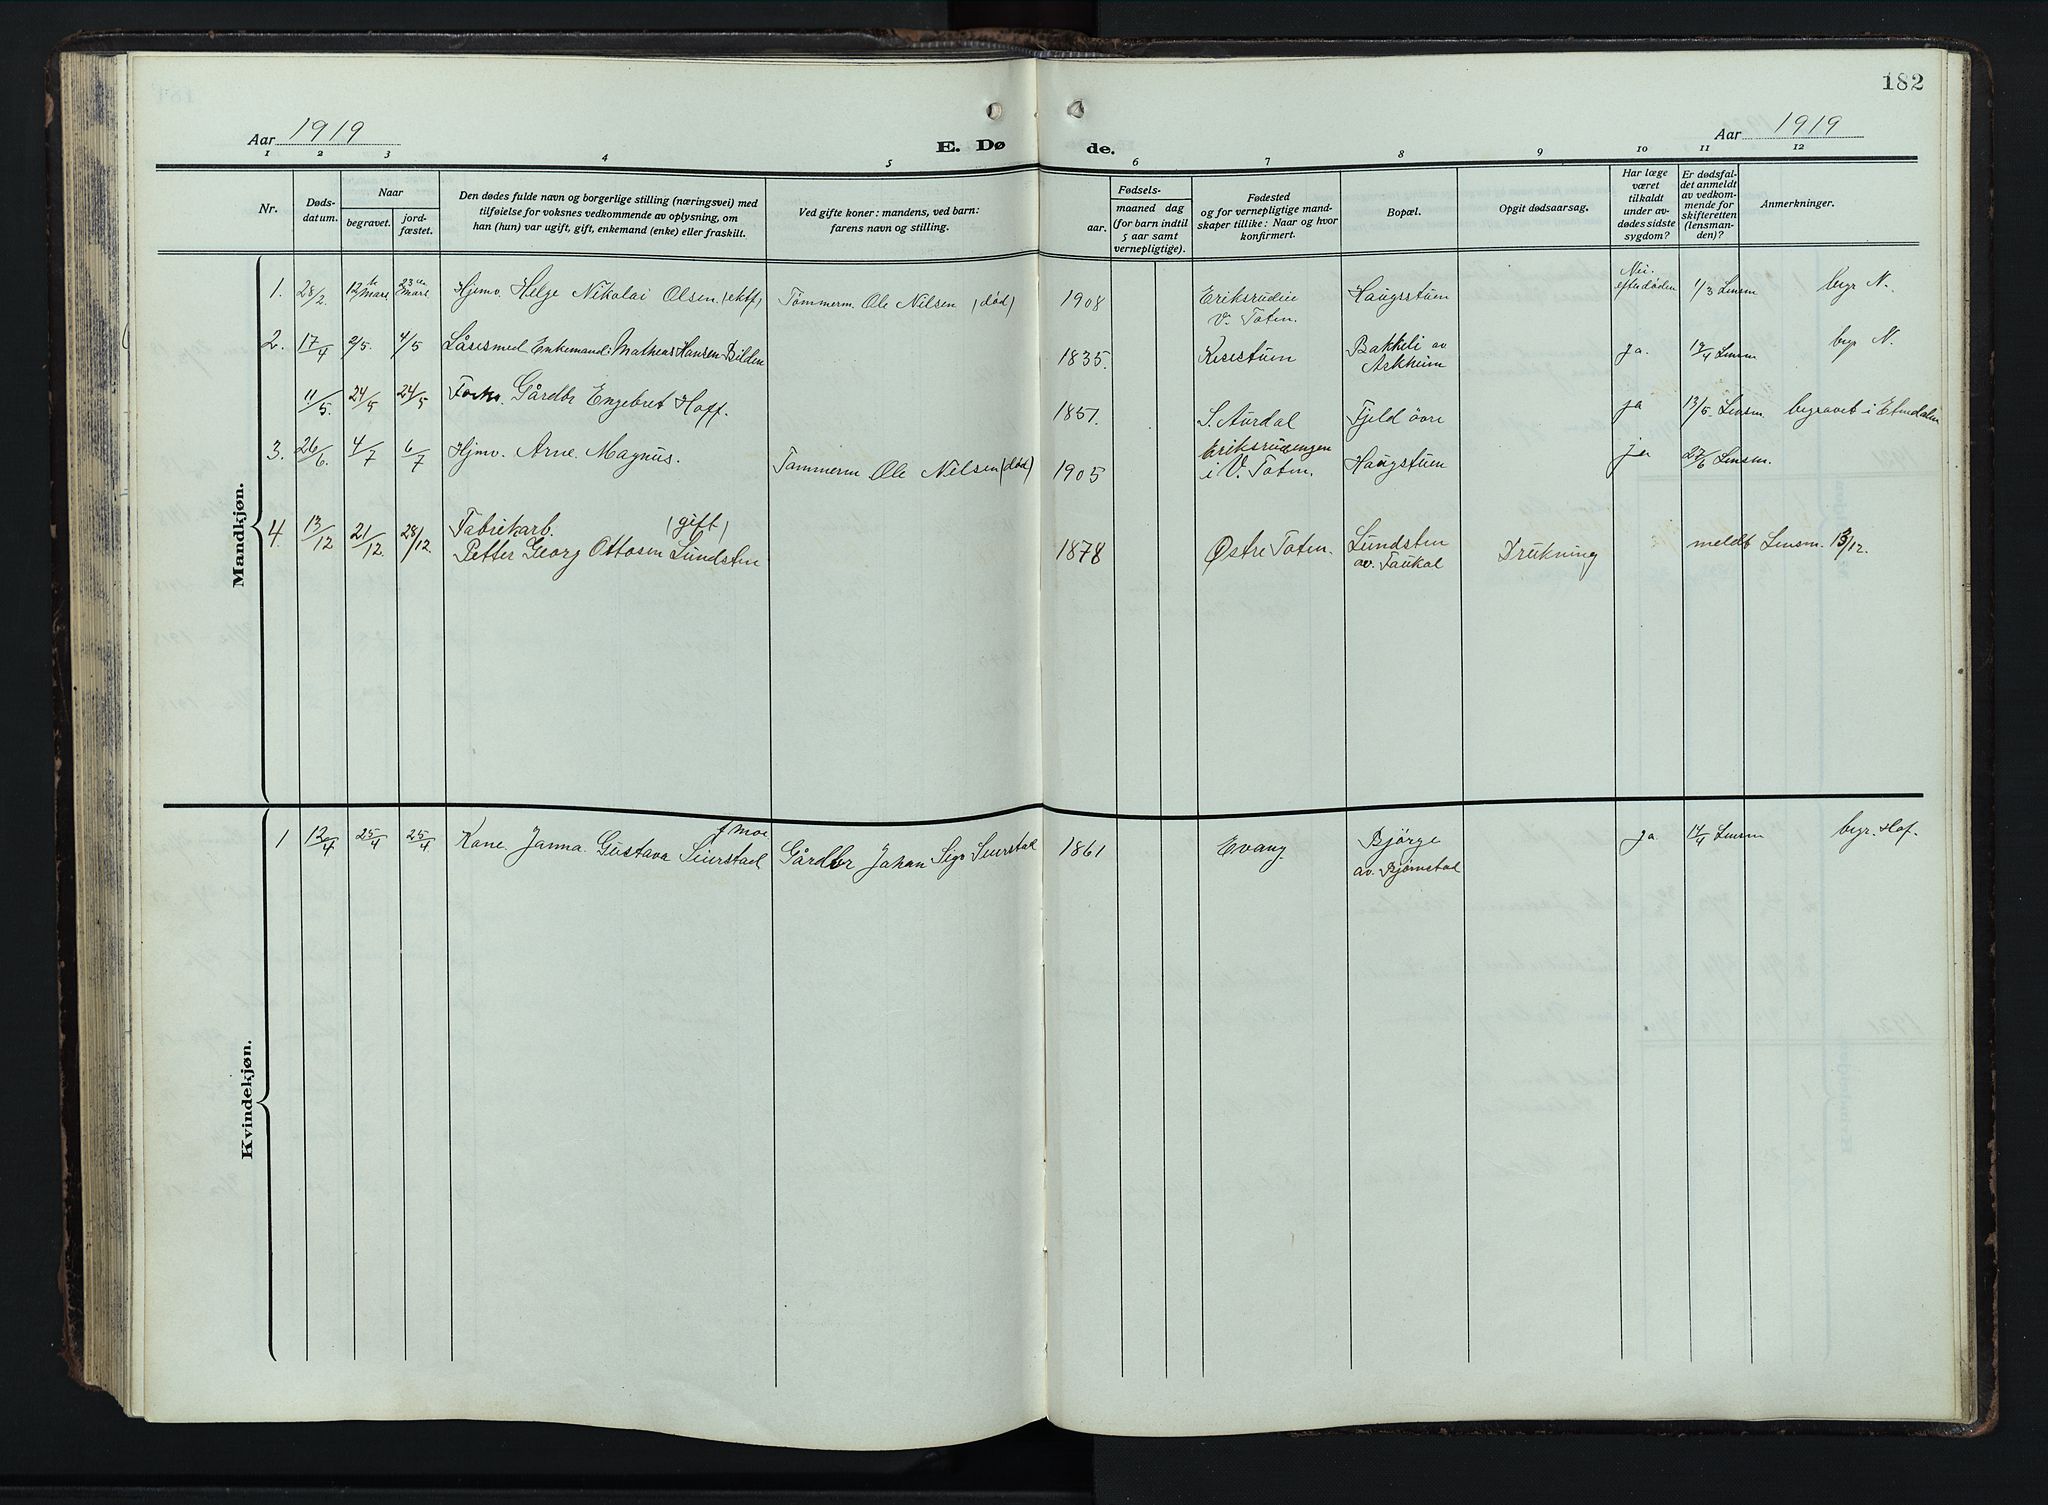 182
Aar 1919
E. Dø
de.
Aar 1919
1 2 3 4 5 6 7 8 9 10 11 12
Nr.
Døds-
datum.
Naar
begravet.
jord-
fæstet.
Den dødes fulde navn og borgerlige stilling (næringsvei) med
tilføielse for voksnes vedkommende av oplysning, om
han (hun) var ugift, gift, enkemand (enke) eller fraskilt.
Ved gifte koner: mandens, ved barn:
farens navn og stilling.
Fødsels-
aar.
maaned dag
(for barn indtil
5 aar samt
vernepligtige).
Fødested
og for vernepligtige mand-
skaper tillike: Naar og hvor
konfirmert.
Bopæl.
Opgit dødsaarsag.
Har læge
været
tilkaldt
under av-
dødes sidste
sygdom?
Er dødsfal-
det anmeldt
av vedkom-
mende for
skifteretten
(lensman-
den)?
Anmerkninger.
Mandkjøn.
1. 28/2. 12te Mars 23de Mars Hjemv. Helge Nikolai Olsen. Tømmerm. Ole Nilsen (død) 1908 V. Toten. Haugsstuen Nei. efter døden 1/3 Lensm begr N.
2. 17/4 2/5. 4/5 Låsesmed Enkemand: Mathens Hansen Bilden 1835. Kisestuen Bakkeli av Askheim ja. 19/4 Lensm begr N.
11/5. 24/5 24/5 Gårdbr Engebret Hoff. 1851. S. Aurdal Fjeld øvre ja 13/5 Lensm. begravet i Etnedalen
3. 26/6. 4/7 6/7 Hjemv. Arne Magnus. Tømmerm Ole Nelsen (død) 1905 Eriksrudengen i V. Toten. Haugstuen ja 27/6 Lensm.
4. 13/12 21/12 28/12 Fabrikarb. (gift)
Petter Georg Ottosen Lundsten 1878 Østre Toten. Lundsten av. Taukol Drukning meldt Lensm. 13/12.
Kvindekjøn.
1 12/4 25/4 25/4 Kone. Janna Gustava Seierstad f Moe Gårdbr Johan Sigv Seierstad 1861 Evang. Bjørge av. Bjørnstad ja. 14/4 Lensm begr. Hof.